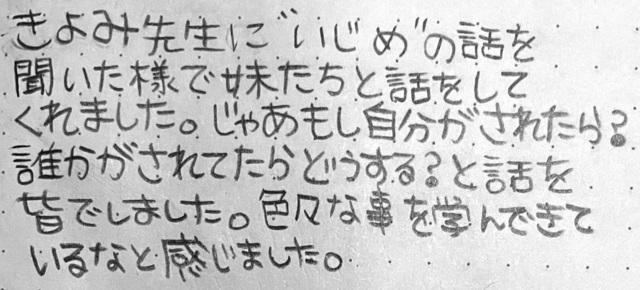 きよみ先生に"いじめ"の話を
聞いた様で妹たちと話をして
くれました。じゃあもし自分がされたら?
誰かがされてたらどうする?と話を
皆でしました。色々な事を学んできて
いるなと感じました。